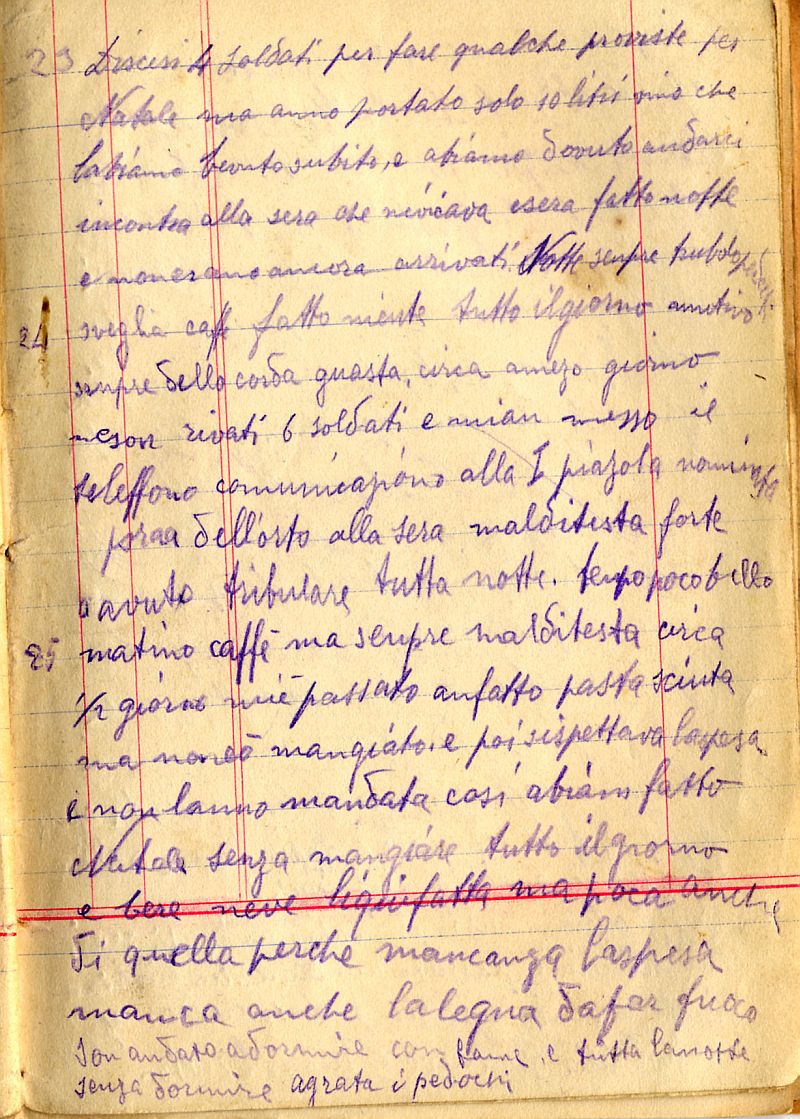 23 Discesi 4 soldati per fare qualche proviste per
Natale ma anno portato solo 10 litri vino che
labiamo bevuto subito, e abiamo dovuto andarci
incontra alla sera che nevicava esera fatto notte
e non erano ancora arrivati. Notte senpre trubolo pedochi
24 sveglia caffe fatto niente tutto il giorno amotivo
senpre dello corda guasta, circa amezo giorno
neson rivati 6 soldati e mian messo il
teleffono comunicazióno alla I piazola nominata
dell'orto alla sera malditesta forte
o avuto tribulare tutta notte. tenpo poco bello
25 matino caffé ma senpre malditesta circa
1/2 giorno mié passato anfatto pasta sciuta
ma non eó mangiato. e poi sispettava laspesa
e non lanno mandata cosí abiám fatto
Natale senza mangiare tutto il giorno
e bere neve liquifatta ma poca anche
di quella perche mancanza laspesa
manca anche lalegna dafar fuoco
son andato adormire con fame e tutta lanotte
senza dormire agrata i pedochi